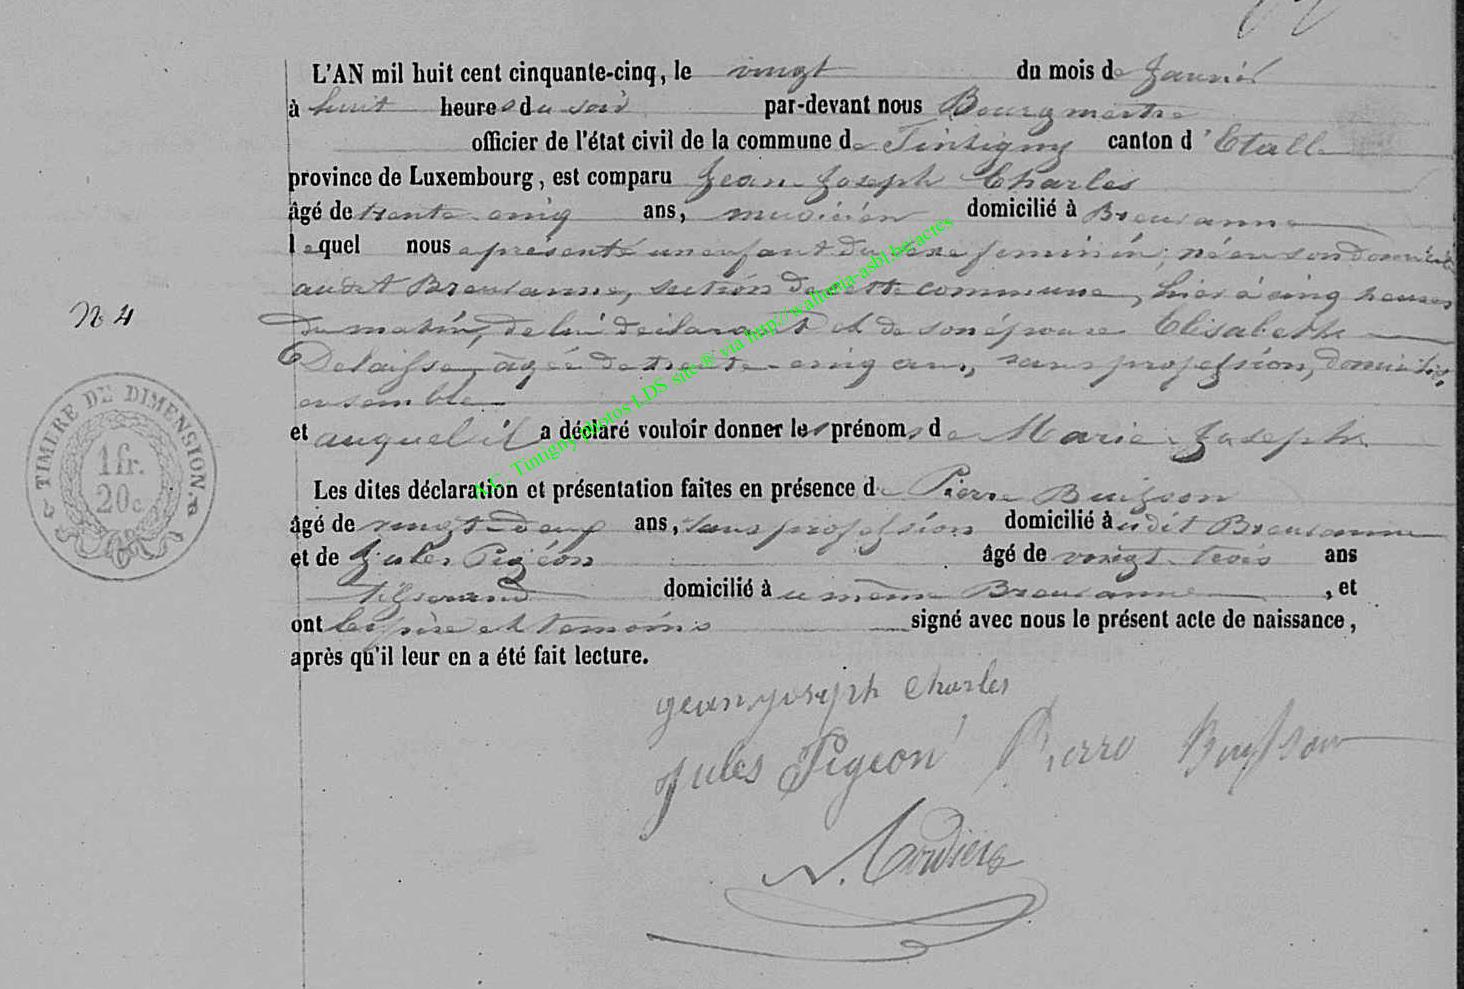 L'AN mil huit cent cinquante-cinq, le vingt du mois de Janvier
à huit heures du soir par-devant nous Bourgmestre
officier de l'état civil de la commune de Tintigny canton d'Etalle
province de Luxembourg, est comparu Jean Joseph Charles
âgé de trente cinq ans, musicien domicilié à Breuvanne
lequel nous a présenté un enfant du sexe feminin, né en son domicile
audit Breuvanne, section de cette commune, hier à cinq heures
N 4
du matin, de lui déclarant et de son épouse Elisabeth
Delaisse, âgée de trente-cinq ans, sans profession, domiciliés
ensemble
et auquel il a déclaré vouloir donner les prénoms de Marie Josephe
TIMBRE DE DIMENSION
1 fr.
20 c.
Les dites déclaration et présentation faites en présence de Pierre Buisson
âgé de vingt-deux ans, sans profession domicilié audit Breuvanne
et de Jules Pigéon âgé de vingt trois ans
tisserand domicilié à u même Breuvanne, et
ont les père et temoins signé avec nous le présent acte de naissance,
après qu'il leur en a été fait lecture.
jean joseph charles
Jules Pigeon Pierre Buisson
A.C. Tintigny photos LDS site © via http://wallonia-asbl.be/actes